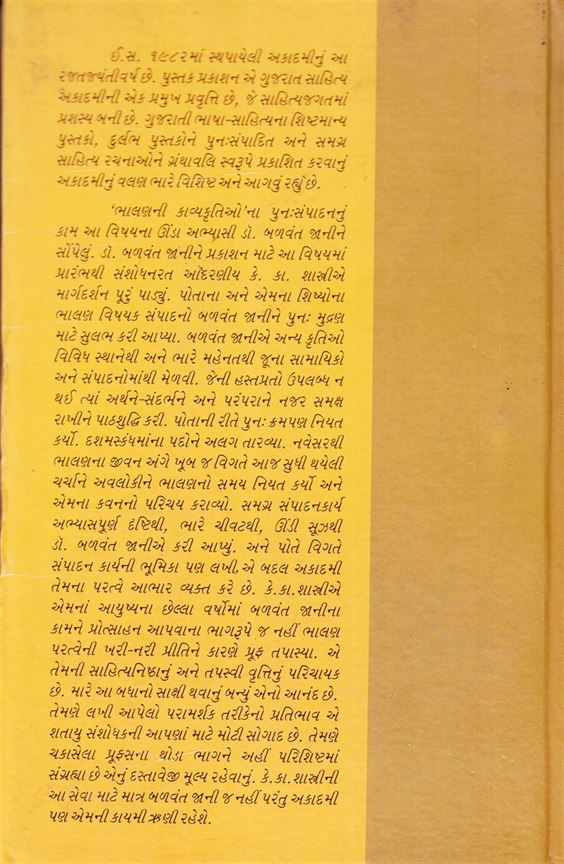 ઈ.સ. ૧૯૮૨માં સ્થપાયેલી અકાદમીનું આ
રજતજયંતીવર્ષ છે. પુસ્તક પ્રકાશન એ ગુજરાત સાહિત્ય
અકાદમીની એક પ્રમુખ પ્રવૃત્તિ છે, જે સાહિત્યજગતમાં
પ્રશસ્ય બની છે. ગુજરાતી ભાષા-સાહિત્યના શિષ્ટમાન્ય
પુસ્તકો, દુર્લભ પુસ્તકોને પુનઃસંપાદિત અને સમગ્ર
સાહિત્ય રચનાઓને ગ્રંથાવલિ સ્વરૂપે પ્રકાશિત કરવાનું
અકાદમીનું વલણ ભારે વિશિષ્ટ અને આગવું રહ્યું છે.
'ભાલણની કાવ્યકૃતિઓ'ના પુનઃસંપાદનનું
કામ આ વિષયના ઊંડા અભ્યાસી ડૉ. બળવંત જાનીને
સોંપેલું. ડૉ. બળવંત જાનીને પ્રકાશન માટે આ વિષયમાં
પ્રારંભથી સંશોધનરત આદરણીય કે. કા. શાસ્ત્રીએ
માર્ગદર્શન પૂરું પાડ્યું. પોતાના અને એમના શિષ્યોના
ભાલણ વિષયક સંપાદનો બળવંત જાનીને પુનઃ મુદ્રણ
માટે સુલભ કરી આપ્યા. બળવંત જાનીએ અન્ય કૃતિઓ
વિવિધ સ્થાનેથી અને ભારે મહેનતથી જૂના સામાયિકો
અને સંપાદનોમાંથી મેળવી. જેની હસ્તપ્રતો ઉપલબ્ધ ન
થઈ ત્યાં અર્થને-સંદર્ભને અને પરંપરાને નજર સમક્ષ
રાખીને પાઠશુદ્ધિ કરી. પોતાની રીતે પુનઃ ક્રમપણ નિયત
કર્યો. દશમસ્કંધમાંના પદોને અલગ તારવ્યા. નવેસરથી
ભાલણના જીવન અંગે ખૂબ જ વિગતે આજ સુધી થયેલી
ચર્ચાને અવલોકીને ભાલણનો સમય નિયત કર્યો અને
એમના કવનનો પરિચય કરાવ્યો. સમગ્ર સંપાદનકાર્ય
અભ્યાસપૂર્ણ દૃષ્ટિથી, ભારે ચીવટથી, ઊંડી સૂઝથી
ડૉ. બળવંત જાનીએ કરી આપ્યું. અને પોતે વિગતે
સંપાદન કાર્યની ભૂમિકા પણ લખી, એ બદલ અકાદમી
તેમના પરત્વે આભાર વ્યક્ત કરે છે. કે.કા.શાસ્ત્રીએ
એમનાં આયુષ્યના છેલ્લા વર્ષોમાં બળવંત જાનીના
કામને પ્રોત્સાહન આપવાના ભાગરૂપે જ નહીં ભાલણ
પરત્વેની ખરી-નરી પ્રીતિને કારણે પ્રૂફ તપાસ્યા. એ
તેમની સાહિત્યનિષ્ઠાનું અને તપસ્વી વૃત્તિનું પરિચાયક
છે. મારે આ બધાનો સાક્ષી થવાનું બન્યું એનો આનંદ છે.
તેમણે લખી આપેલો પરામર્શક તરીકેનો પ્રતિભાવ એ
શતાયુ સંશોધકની આપણાં માટે મોટી સોગાદ છે. તેમણે
ચકાસેલા પ્રૂફ્સના થોડા ભાગને અહીં પરિશિષ્ટમાં
સંગ્રહ્યા છે એનું દસ્તાવેજી મૂલ્ય રહેવાનું. કે.કા.શાસ્ત્રીની
આ સેવા માટે માત્ર બળવંત જાની જ નહીં પરંતુ અકાદમી
પણ એમની કાયમી ઋણી રહેશે.